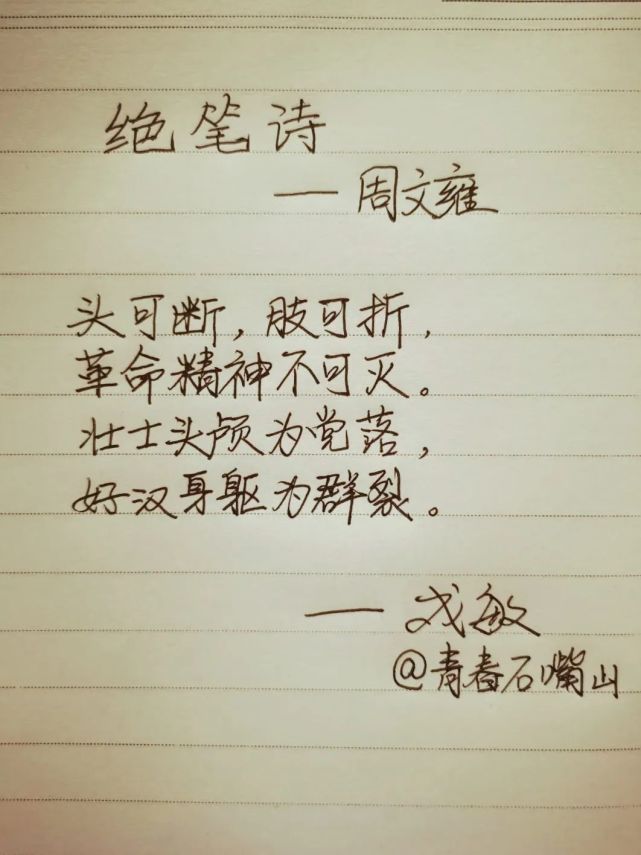 绝笔诗
— 周文雍
头可断，肢可折，
革命精神不可灭。
壮士头颅为党落，
好汉身躯为群裂。
— 戈敏
@青春石嘴山